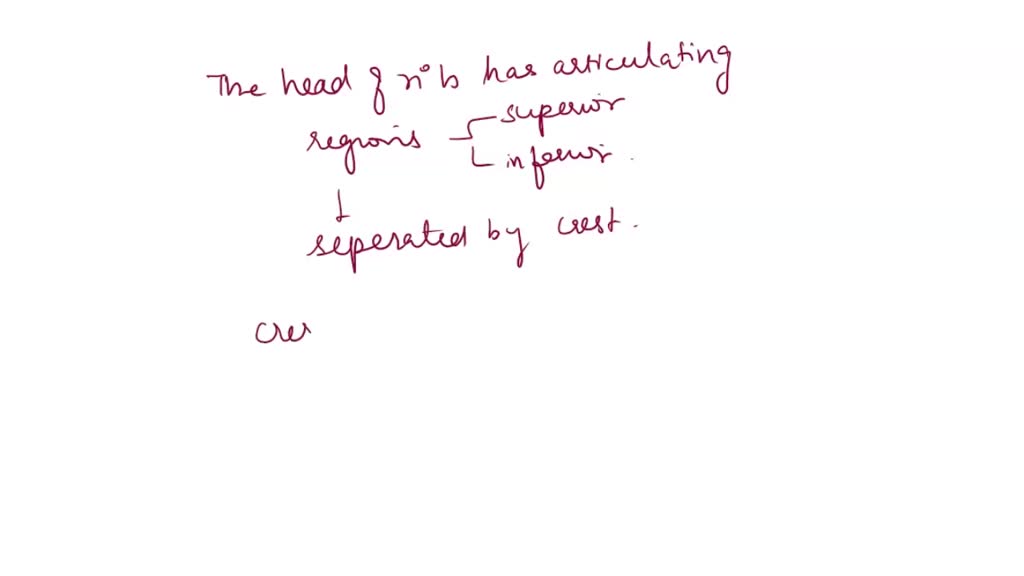 The head of rib has articulating
regions superior
inferior.
seperated by crest.
cres